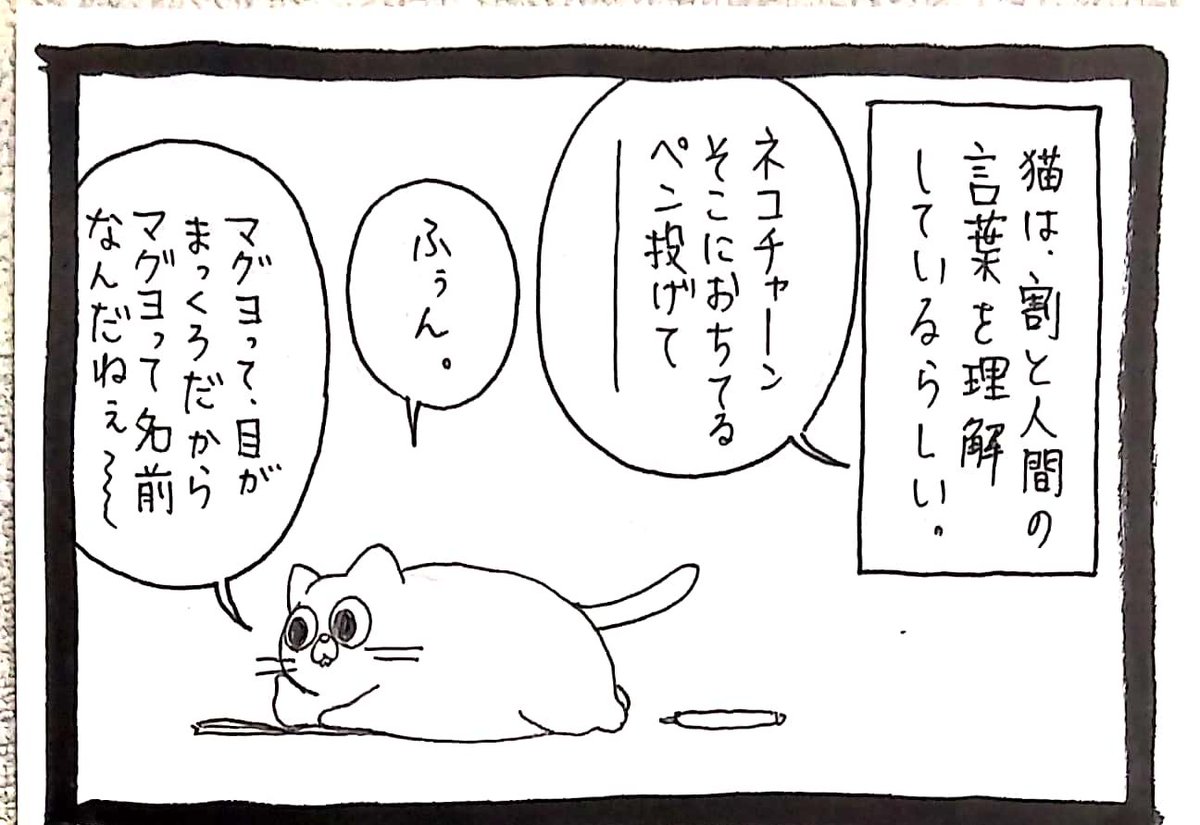 猫は、割と人間の
言葉を理解
しているらしい。
ネコチャーン
そこにおちてる
ペン投げて
ーー
ふぅん。
マグヨって、目が
まっくろだから
マグヨって名前
なんだねぇ〜〜